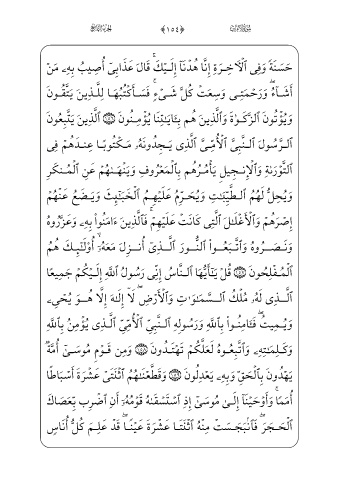 ﴿١٥٤﴾
حَسَنَةً وَفِى ٱلْـَٔاخِرَةِ إِنَّا هُدْنَآ إِلَيْكَ ۚ قَالَ عَذَابِىٓ أُصِيبُ بِهِۦ مَنْ
أَشَآءُ ۖ وَرَحْمَتِى وَسِعَتْ كُلَّ شَىْءٍ ۚ فَسَأَكْتُبُهَا لِلَّذِينَ يَتَّقُونَ
وَيُؤْتُونَ ٱلزَّكَوٰةَ وَٱلَّذِينَ هُم بِـَٔايَـٰتِنَا يُؤْمِنُونَ ۝ ٱلَّذِينَ يَتَّبِعُونَ
ٱلرَّسُولَ ٱلنَّبِىَّ ٱلْأُمِّىَّ ٱلَّذِى يَجِدُونَهُۥ مَكْتُوبًا عِندَهُمْ فِى
ٱلتَّوْرَىٰةِ وَٱلْإِنجِيلِ يَأْمُرُهُم بِٱلْمَعْرُوفِ وَيَنْهَىٰهُمْ عَنِ ٱلْمُنكَرِ
وَيُحِلُّ لَهُمُ ٱلطَّيِّبَـٰتِ وَيُحَرِّمُ عَلَيْهِمُ ٱلْخَبَـٰٓئِثَ وَيَضَعُ عَنْهُمْ
إِصْرَهُمْ وَٱلْأَغْلَـٰلَ ٱلَّتِى كَانَتْ عَلَيْهِمْ ۚ فَٱلَّذِينَ ءَامَنُوا۟ بِهِۦ وَعَزَّرُوهُ
وَنَصَرُوهُ وَٱتَّبَعُوا۟ ٱلنُّورَ ٱلَّذِىٓ أُنزِلَ مَعَهُۥٓ ۙ أُو۟لَـٰٓئِكَ هُمُ
ٱلْمُفْلِحُونَ ۝ قُلْ يَـٰٓأَيُّهَا ٱلنَّاسُ إِنِّى رَسُولُ ٱللَّهِ إِلَيْكُمْ جَمِيعًا
ٱلَّذِى لَهُۥ مُلْكُ ٱلسَّمَـٰوَٰتِ وَٱلْأَرْضِ ۖ لَآ إِلَـٰهَ إِلَّا هُوَ يُحْىِۦ
وَيُمِيتُ ۖ فَـَٔامِنُوا۟ بِٱللَّهِ وَرَسُولِهِ ٱلنَّبِىِّ ٱلْأُمِّىِّ ٱلَّذِى يُؤْمِنُ بِٱللَّهِ
وَكَلِمَـٰتِهِۦ وَٱتَّبِعُوهُ لَعَلَّكُمْ تَهْتَدُونَ ۝ وَمِن قَوْمِ مُوسَىٰٓ أُمَّةٌ
يَهْدُونَ بِٱلْحَقِّ وَبِهِۦ يَعْدِلُونَ ۝ وَقَطَّعْنَـٰهُمُ ٱثْنَتَىْ عَشْرَةَ أَسْبَاطًا
أُمَمًا ۚ وَأَوْحَيْنَآ إِلَىٰ مُوسَىٰٓ إِذِ ٱسْتَسْقَىٰهُ قَوْمُهُۥٓ أَنِ ٱضْرِب بِّعَصَاكَ
ٱلْحَجَرَ ۖ فَٱنۢبَجَسَتْ مِنْهُ ٱثْنَتَا عَشْرَةَ عَيْنًا ۖ قَدْ عَلِمَ كُلُّ أُنَاسٍ